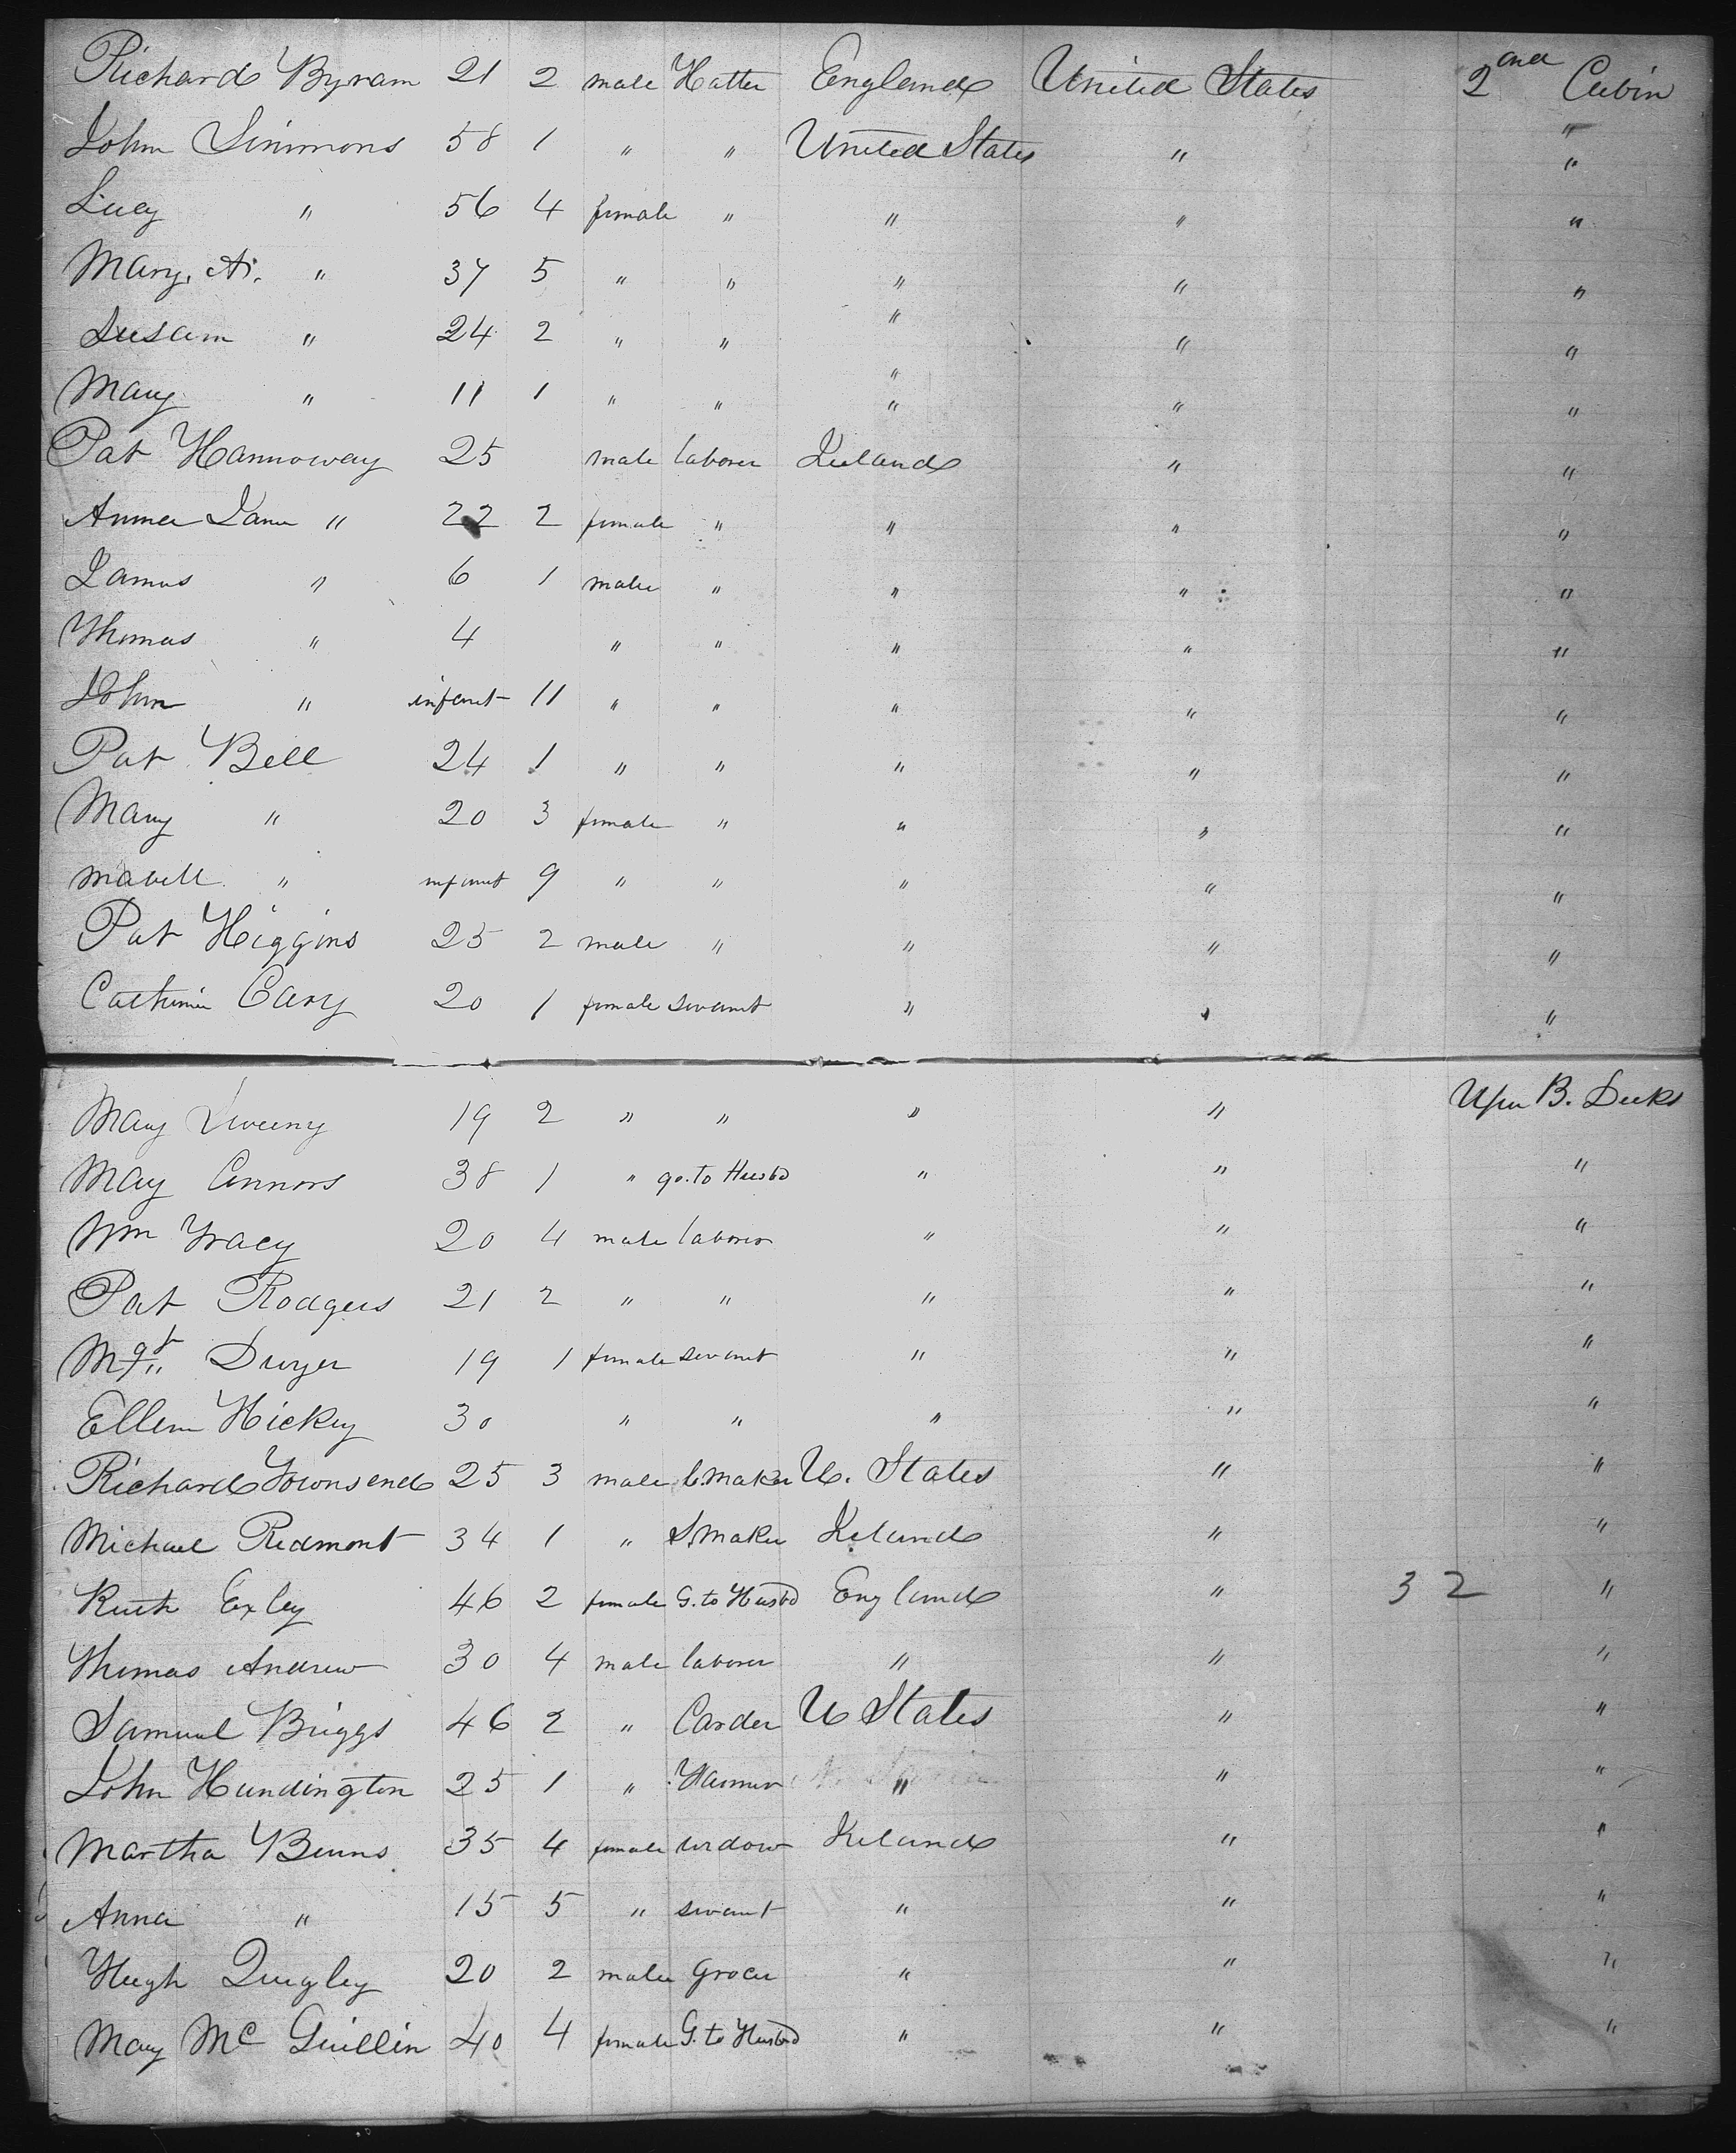 Richard Byram 21 2 male Hatter England United States 2nd Cabin
"
John Simmons 58 1 " " United States " "
Lucy " 56 4 female " " " "
Mary, A. " 37 5 " " " " "
Susan " 24 2 " " " " "
"
Mary " 11 1 " " " " "
Pat Hannoway 25 male laborer Ireland " "
Anna Jane " 22 2 female " " " "
James " 6 1 male " " " "
Thomas " 4 " " " " "
John " infant 11 " " " " "
Pat Bell 24 1 " " " " "
Mary " 20 3 female " " " "
" infant 9 " " " " "
Pat Higgins 25 2 male " " " "
Catherine Cary 20 1 female servant " " "
Mary Sweeny 19 2 " " " " Upr B. Decks
Mary Connors 38 1 " go. to Husbd " " "
Wm Tracy 20 4 male laborer " " "
Pat Rodgers 21 2 " " " " "
Mgt Dwyer 19 1 female servant " " "
Ellen Hickey 30 " " " " "
Richard Townsend 25 3 male maker U. States " "
Michael Redmont 34 1 " S.maker Ireland " "
Ruth Exley 46 2 female G. to Husbd England " 32 "
Thomas Andrew 30 4 male laborer " " "
Samuel Briggs 46 2 " Carder U States " "
John Hundington 25 1 " " " "
Martha Binns 35 4 female widow Ireland " "
Anna " 15 5 " servant " " "
Hugh Quigley 20 2 male Grocer " " "
Mary Mc Guillin 40 4 female G. to Husbd " " "